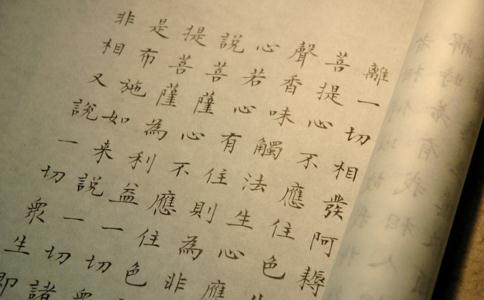 離一切相發阿耨
菩提心不應住色生
聲香味觸法生心應
心若心有住則為非
說菩薩心不應住色
提菩薩為利益一切眾
是布施如来說一切諸
非相又說一切眾生即